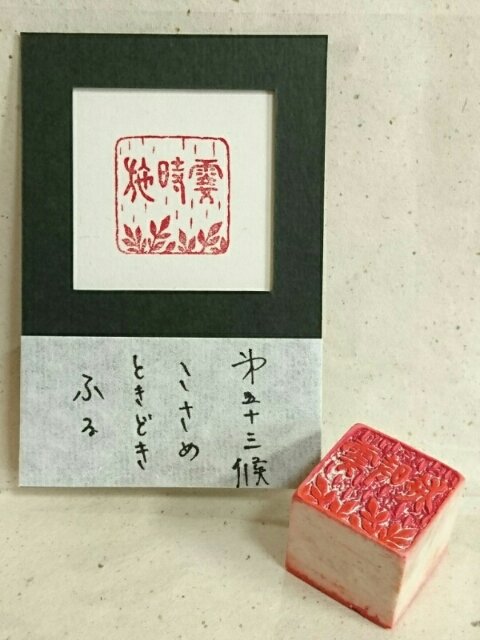 霎時施
第五十三候
こさめ
ときどき
ふる